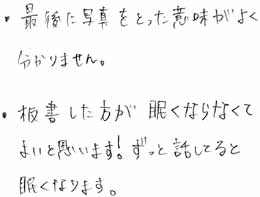 ・最後に写真をとった意味がよく
分かりません。
・板書した方が眠くならなくて
よいと思います!ずっと話してると
眠くなります。